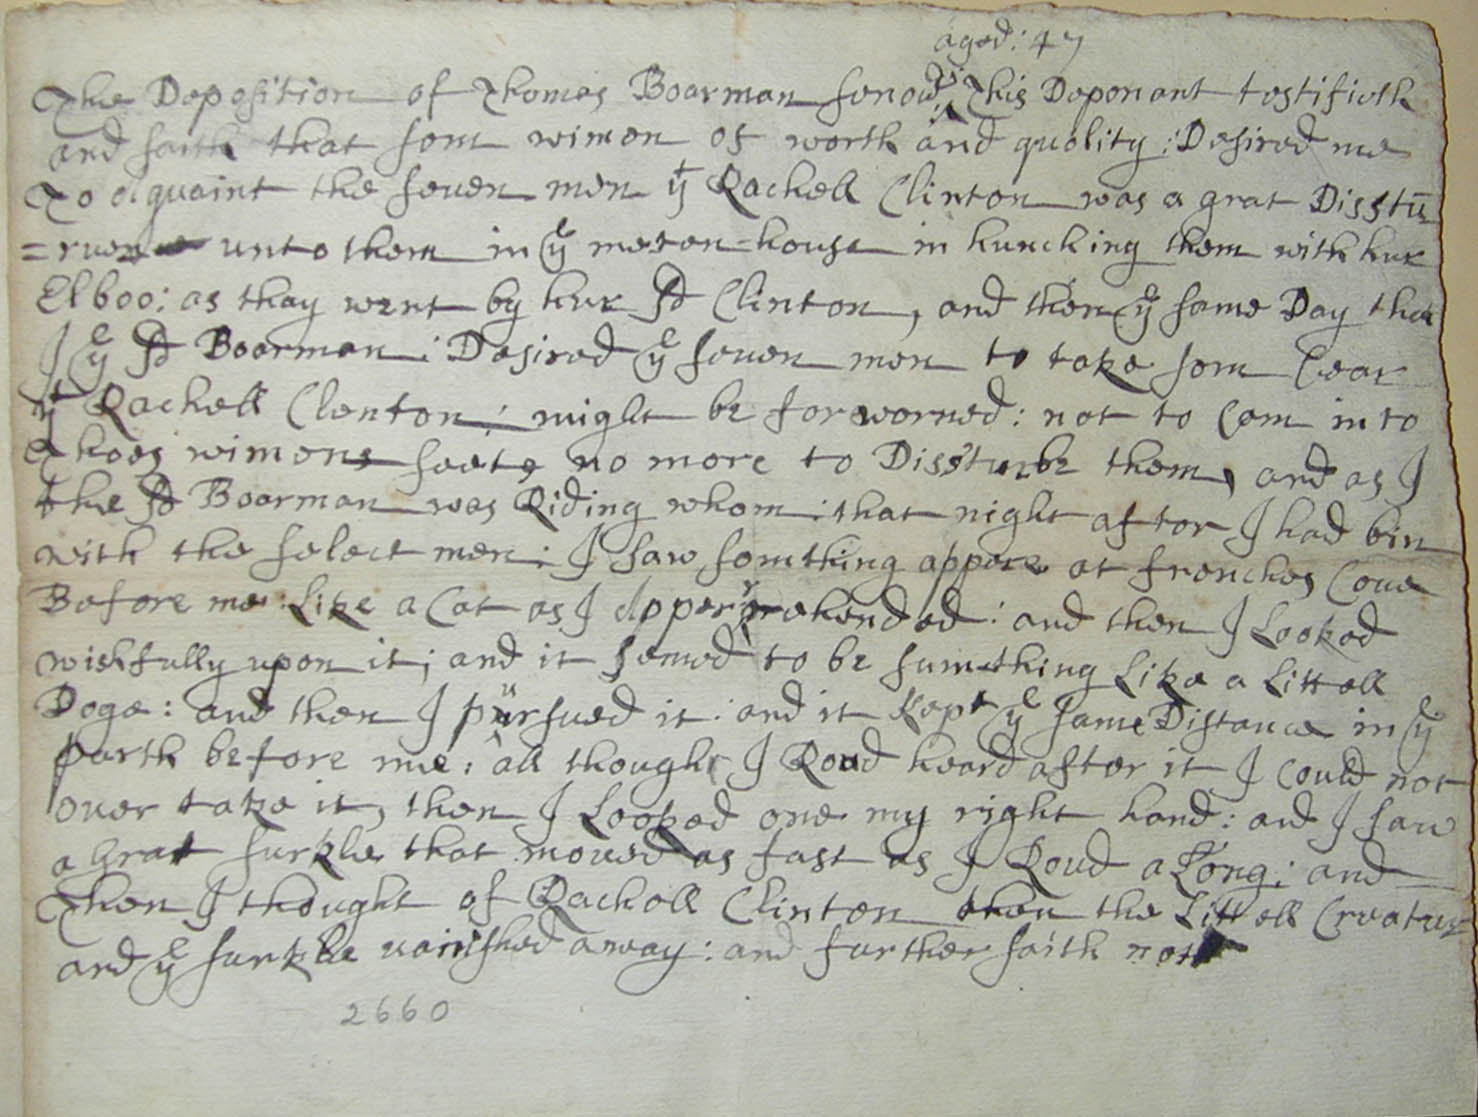 aged: 47
The Deposition of Thomas Boarman senour This Deponant testifieth
and saith that som wimen of worth and quolity: Desired me
To aquaint the seuen men yt Rachell Clinton was a grat Disstu
=runce unto them in ye meten=house in hunching them with hur
Elboo: as thay went by hur sd Clinton, and then ye same Day that
I ye sd Boarman: Desired ye seuen men to take som Cear
yt Rachell Clenton: might be forworned: not to Com into
Thoos wimens seets no more to Dissturbe them, and as I
the sd Boarman was Riding whom: that night after I had bin
with the select men: I saw somthing appere at frenches Coue
Before me: Like a Cat as I Apperrehended: and then I Looked
wishfully upon it; and it semed to be sumthing Like a Littell
Doge: and then I pursued it: and it kept ye same Distance in ye
parth before me: all though I Roud heard after it I could not
ouer take it, then I Looked one my right hand: and I saw
a Grat surkle that moued as fast as I Roud a Long: and
Then I thought of Rachell Clinton then the Littell Creatur
and ye surkle vainshed away: and further saith not
2660